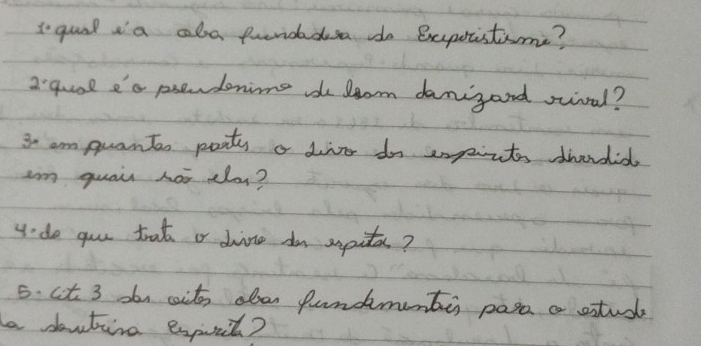 1. qual é a oba fundadora do Exeperistismo?
2. qual é o pseudonimo de leom danizard rival?
3. em quantas partes o livro dos espiritos diverdido
em quais são elas?
4. do que trata o livro dos espitos?
5. cite 3 das oitos obas fundamentais para o estudo
da doutrina espirita?